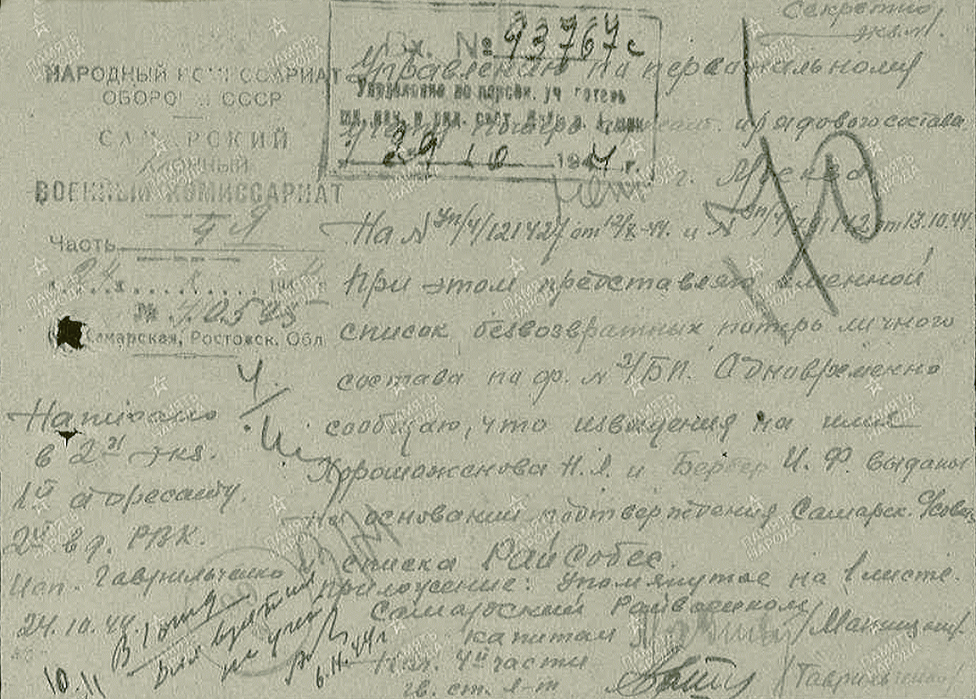 Секретно
экз. №1
Вх. № 93767с
Управление по персон. уч. потерь
29 10 1944 г.
Управлению по персональному
учету потерь сержант. и рядового состава
г. Москва
НАРОДНЫЙ КОМИССАРИАТ
ОБОРОНЫ СССР
САМАРСКИЙ
РАЙОННЫЙ
ВОЕННЫЙ КОМИССАРИАТ
Часть 4я
№ 40535
Самарская, Ростовск. Обл.
На № Уп/4/121427 от 12/X-44. и № от 13.10.44.
При этом представляю именной
список безвозвратных потерь личного
состава по ф. № 2/БП. Одновременно
сообщаю, что извещения на имя
Хорошоженова Н.Я. и Бербер И.Ф. выданы
на основании подтверждения Самарск.
списка Райсобес.
Приложение: Упомянутое на 1 листе.
Самарский Райвоенком
капитан /Маницкий/
Нач. 4й части
гв. ст. л-т /Гаврильченко/
Написано
в 2х экз.
1й адресату.
2й в д. РВК.
Исп. Гаврильченко
24.10.44.
на учет
6.11.44г
10.11